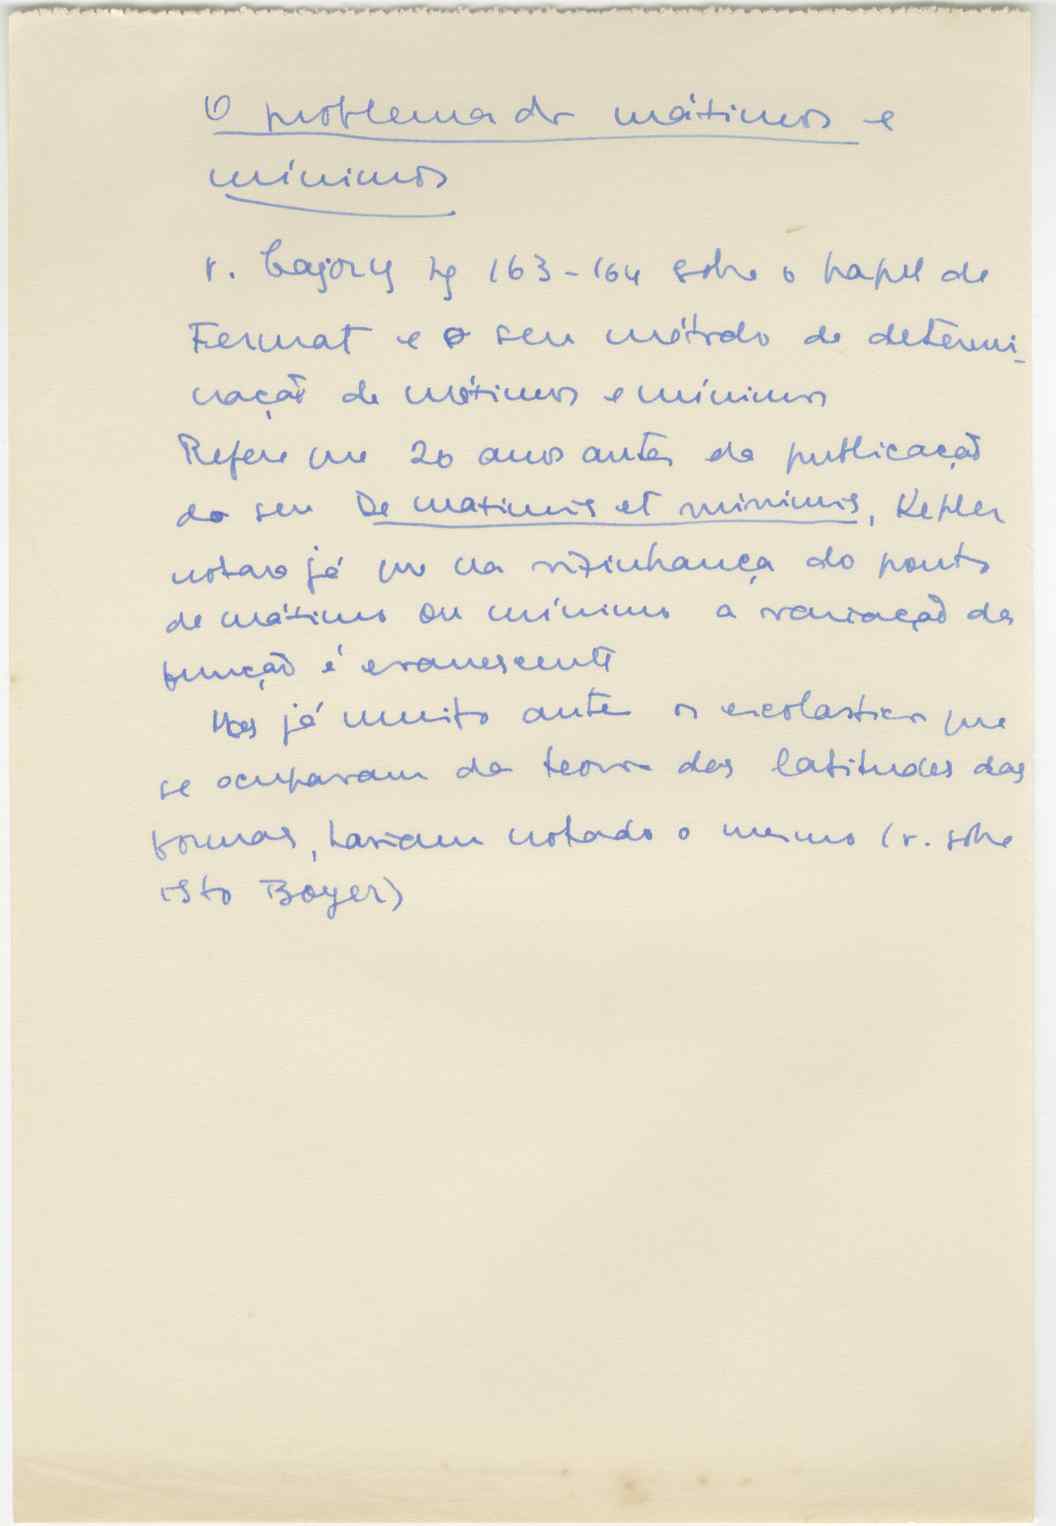 O problema dos máximos e
mínimos
v. Cajory pg 163-164 sobre o papel de
Fermat e o seu método de determi-
nação de máximos e mínimos
Refere que 20 anos antes da publicação
do seu De maximis et minimis, Kepler
notara já que na vizinhança do ponto
de máximo ou mínimo a variação da
função é evanescente
Mas já muito antes os escolasticos que
se ocuparam da teoria das latitudes das
formas, haviam notado o mesmo (v. sobre
isto Boyer)